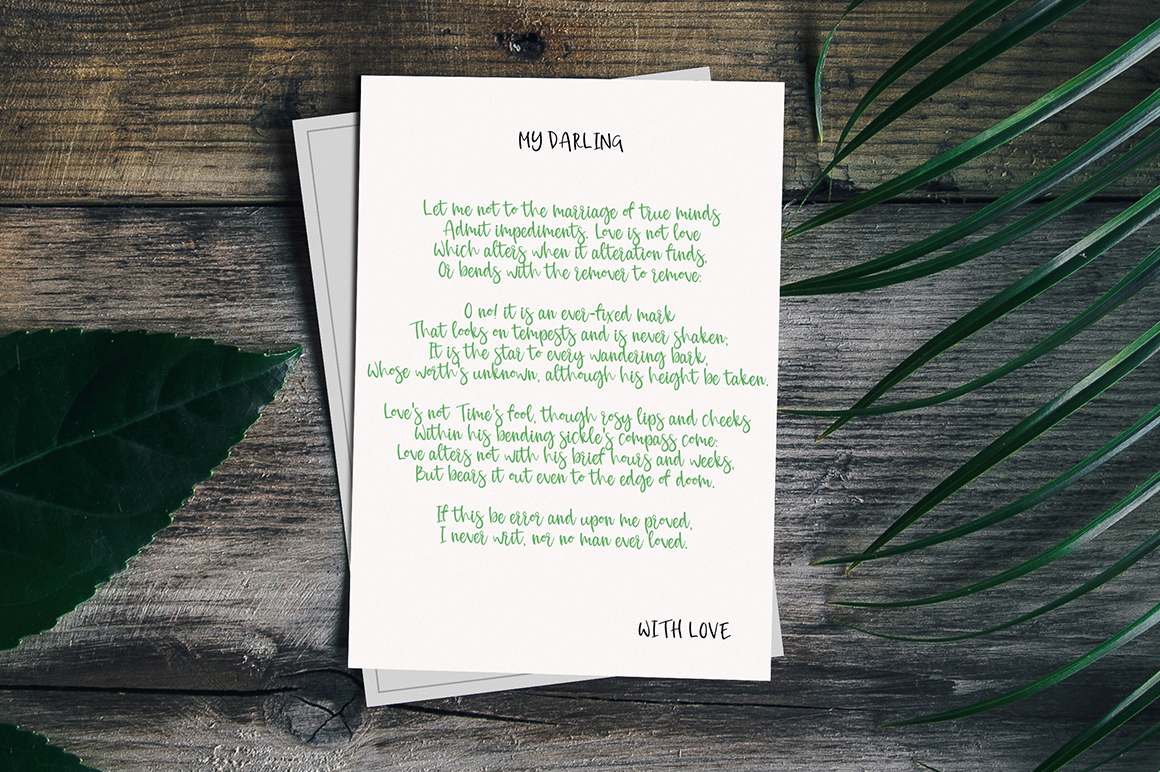 MY DARLING
Let me not to the marriage of true minds
Admit impediments. Love is not love
Which alters when it alteration finds,
Or bends with the remover to remove:
O no! it is an ever-fixed mark
That looks on tempests and is never shaken;
It is the star to every wandering bark,
Whose worth's unknown, although his height be taken.
Love's not Time's fool, though rosy lips and cheeks
Within his bending sickle's compass come;
Love alters not with his brief hours and weeks,
But bears it out even to the edge of doom.
If this be error and upon me proved,
I never writ, nor no man ever loved.
WITH LOVE